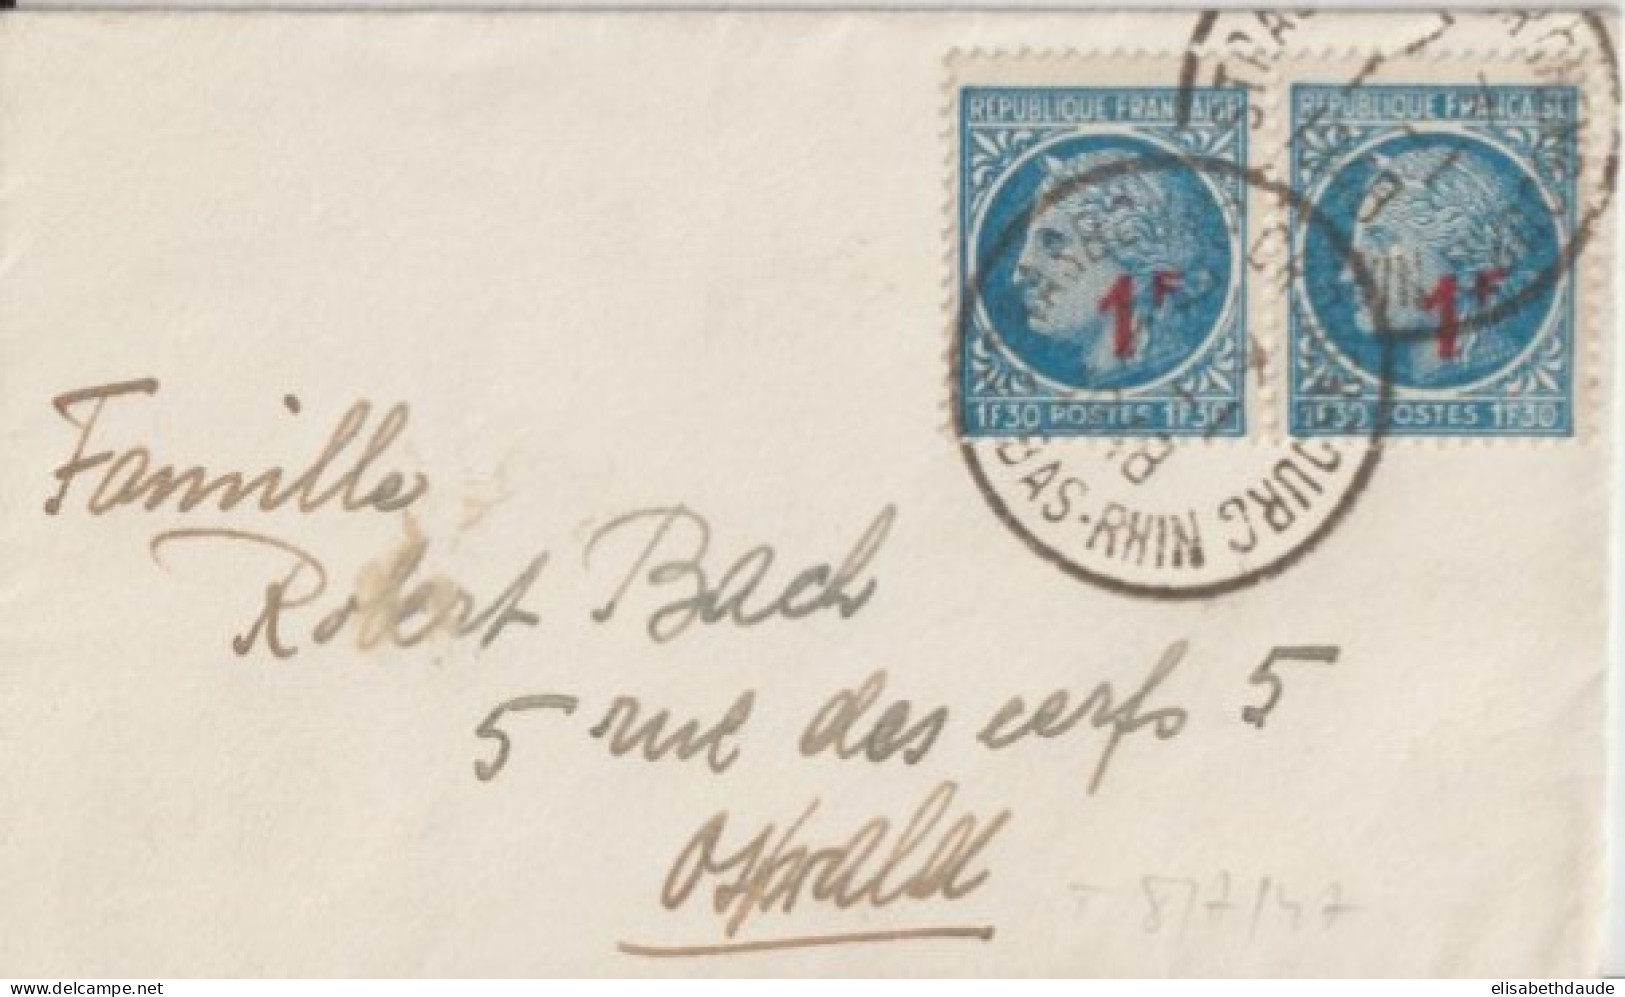 REPUBLIQUE FRANÇAISE REPUBLIQUE FRANÇAISE
1F 1F
1F30 POSTES 1F30 1F30 POSTES 1F30
BAS-RHIN
Famille
Robert Bach
5 rue des cerfs 5
Ostwald
8/7/47
delcampe.net
elisabethdaude